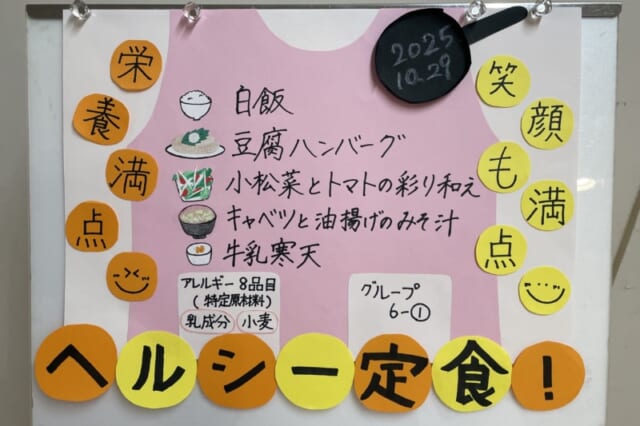 栄養満点
2025
10.29
笑顔も満点
白飯
豆腐ハンバーグ
小松菜とトマトの彩り和え
キャベツと油揚げのみそ汁
牛乳寒天
アレルギー8品目
(特定原材料)
乳成分 小麦
グループ
6-①
ヘルシー定食!